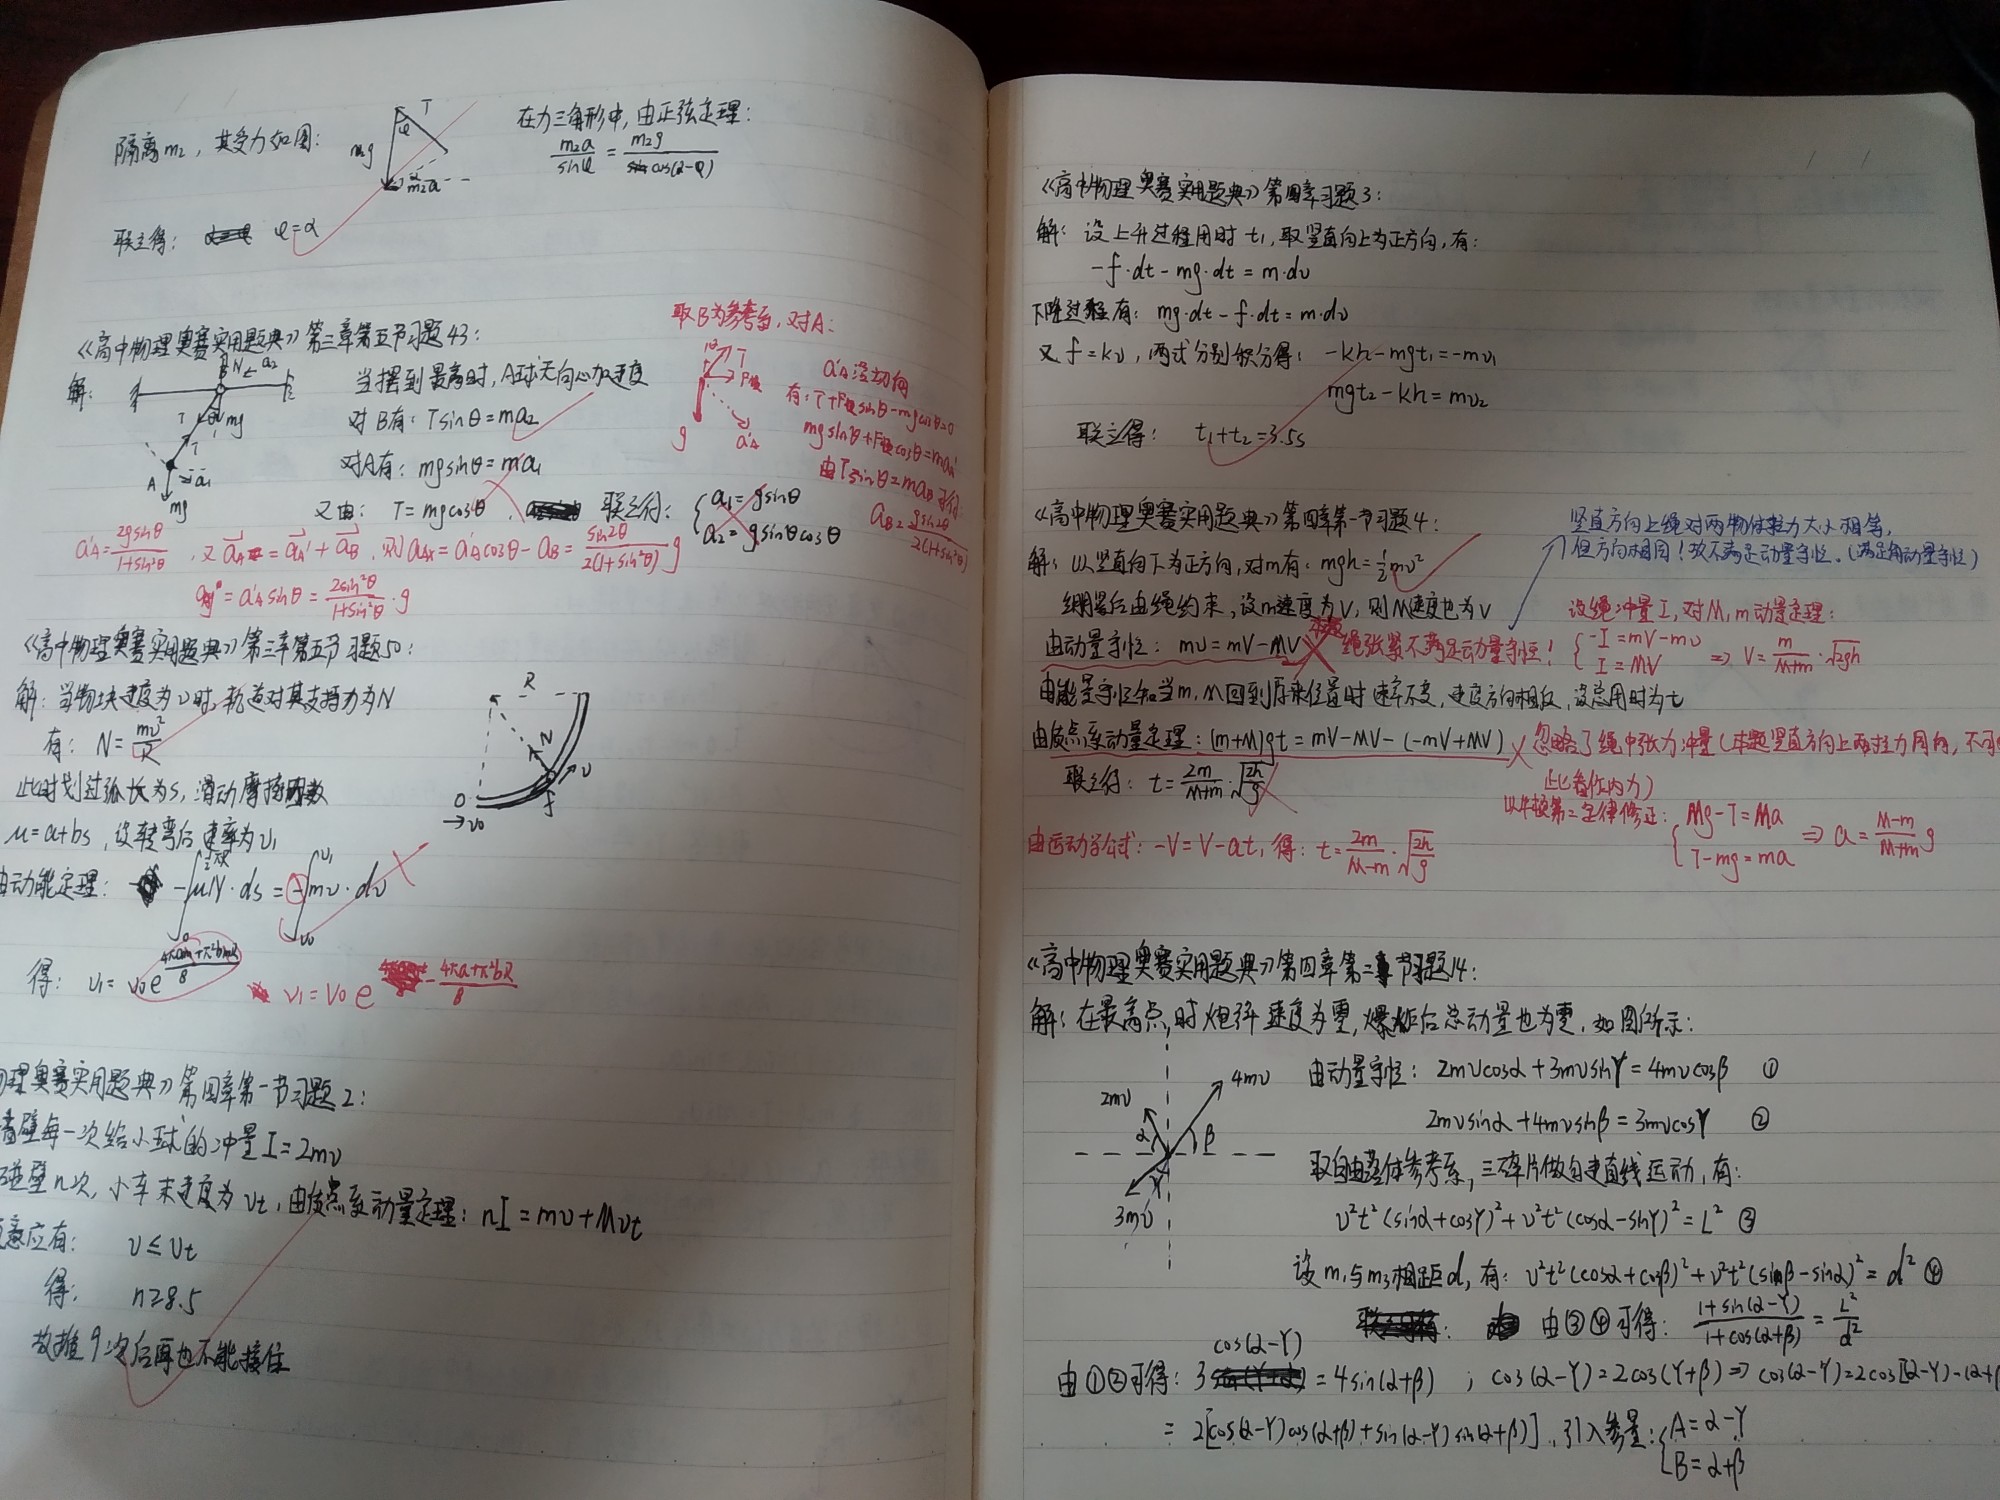 隔离m₂，其受力如图：
T
φ
m₂g
m₂a
在力三角形中，由正弦定理：
m₂a/sinφ = m₂g/cos(α-φ)
联立得： φ=α
《高中物理奥赛实用题典》第三章第五节习题43：
解：
B N a₂
T θ mg
T
A a₁
mg
当摆到最高时，A球无向心加速度
对B有：Tsinθ=ma₂
对A有：mgsinθ=ma₁
又由：T=mgcosθ， 联立得：{a₁=gsinθ
a₂=gsinθcosθ
取B为参考系，对A：
T
F惯
g
a'A
a'A沿切向
有：T+F惯sinθ-mgcosθ=0
mgsinθ+F惯cosθ=ma'A
由Tsinθ=maB可得
aB=gsin2θ/2(1+sin²θ)
a'A=2gsinθ/1+sin²θ，又a⃗A=a⃗A'+a⃗B，则aAx=a'Acosθ-aB=sin2θ/2(1+sin²θ) g
aAy=a'Asinθ=2sin²θ/1+sin²θ·g
《高中物理奥赛实用题典》第三章第五节习题50：
解：当物块速度为v时，轨道对其支持力为N
有：N=mv²/R
此时划过弧长为s，滑动摩擦因数
μ=a+bs，设转弯后速率为v₁
R
N
v
f
O
v₀
由动能定理： -∫₀^(½πR) μN·ds=-∫_(v₀)^(v₁) mv·dv
得：v₁=v₀e^(4πam+π²bmR/8)
v₁=v₀e^(-4πa+π²bR/8)
物理奥赛实用题典》第四章第一节习题2：
墙壁每一次给小球的冲量I=2mv
碰壁n次，小车末速度为vt，由质点系动量定理：nI=mv+Mvt
意应有： v≤vt
得： n≥8.5
故推9次后再也不能接住
《高中物理奥赛实用题典》第四章习题3：
解：设上升过程用时t₁，取竖直向上为正方向，有：
-f·dt-mg·dt=m·dv
下降过程有：mg·dt-f·dt=m·dv
又f=kv，两式分别积分得：-kh-mgt₁=-mv₁
mgt₂-kh=mv₂
联立得： t₁+t₂=3.5s
《高中物理奥赛实用题典》第四章第一节习题4：
竖直方向上绳对两物体拉力大小相等，
但方向相同！故不满足动量守恒。（满足角动量守恒）
解：以竖直向下为正方向，对m有：mgh=½mv²
绷紧后由绳约束，设m速度为V，则M速度也为V
由动量守恒：mv=mV-MV 绳张紧不满足动量守恒！
设绳冲量I，对M，m动量定理：
{-I=mV-mv
I=MV ⇒ V=m/M+m·√2gh
由能量守恒知当m，M回到原来位置时速率不变，速度方向相反，设总用时为t
由质点系动量定理：(m+M)gt=mV-MV-(-mV+MV) 忽略了绳中张力冲量（本题竖直方向上两拉力同向，不可
此看作内力）
联立得：t=2m/M+m·√2h/g
以牛顿第二定律修正：{Mg-T=Ma
T-mg=ma ⇒ a=M-m/M+m g
由运动学公式：-V=V-at，得：t=2m/M-m·√2h/g
《高中物理奥赛实用题典》第四章第二节习题14：
解：在最高点时炮弹速度为零，爆炸后总动量也为零，如图所示：
4mv
2mv
α β
γ
3mv
由动量守恒：2mvcosα+3mvsinγ=4mvcosβ ①
2mvsinα+4mvsinβ=3mvcosγ ②
取自由落体参考系，三碎片做匀速直线运动，有：
v²t²(sinα+cosγ)²+v²t²(cosα-sinγ)²=L² ③
设m₁与m₃相距d，有：v²t²(cosα+cosβ)²+v²t²(sinβ-sinα)²=d² ④
由③④可得：1+sin(α-γ)/1+cos(α+β)=L²/d²
由①②可得：3cos(α-γ)=4sin(α+β)；cos(α-γ)=2cos(γ+β)⇒cos(α-γ)=2cos[(α-γ)-(α+β
=2[cos(α-γ)cos(α+β)+sin(α-γ)sin(α+β)]，引入参量：{A=α-γ
B=α+β